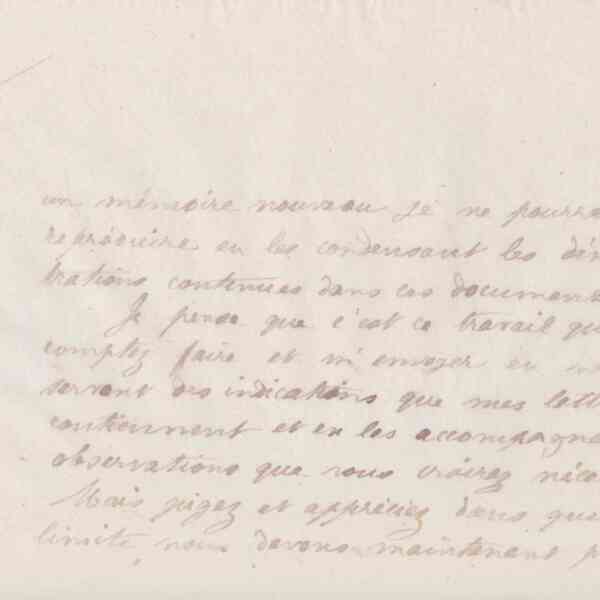 un mémoire nouveau je ne pourra
reproduire en les condensant les dém
trations contenues dans ces document
Je pense que c'est ce travail qu
comptez faire et m'envoyer en
servant des indications que mes lett
contiennent et en les accompagna
observations que vous croirez néce
Mais jugez et appréciez dans que
limite, nous devons maintenant p